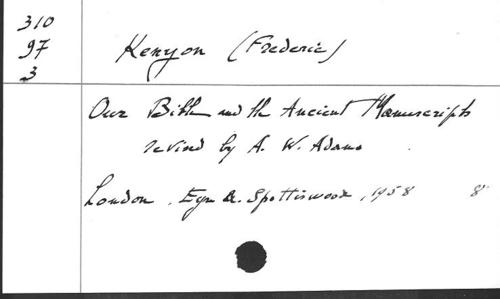 310
97
3
Kenyon (Frederic)
Our Bible and the Ancient Manuscripts
revised by A. W. Adams.
London. Eyre &. Spottiswood, 1958 8°